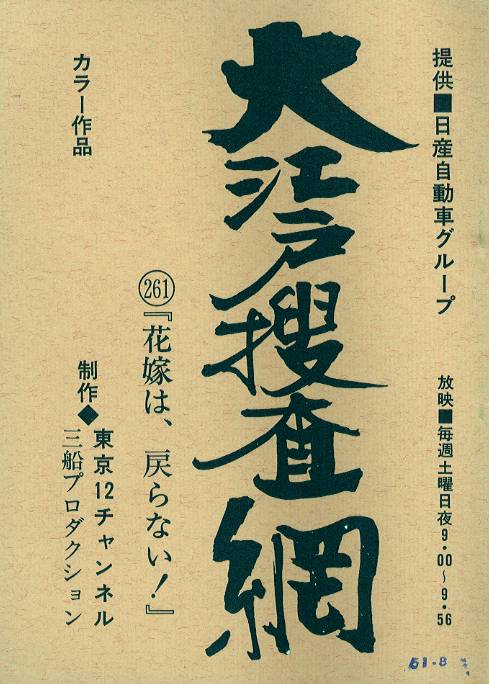 提供■日産自動車グループ
放映■毎週土曜日夜9・00〜9・56
大江戸捜査網
㉖『花嫁は、戻らない!』
カラー作品
制作◆東京12チャンネル
三船プロダクション